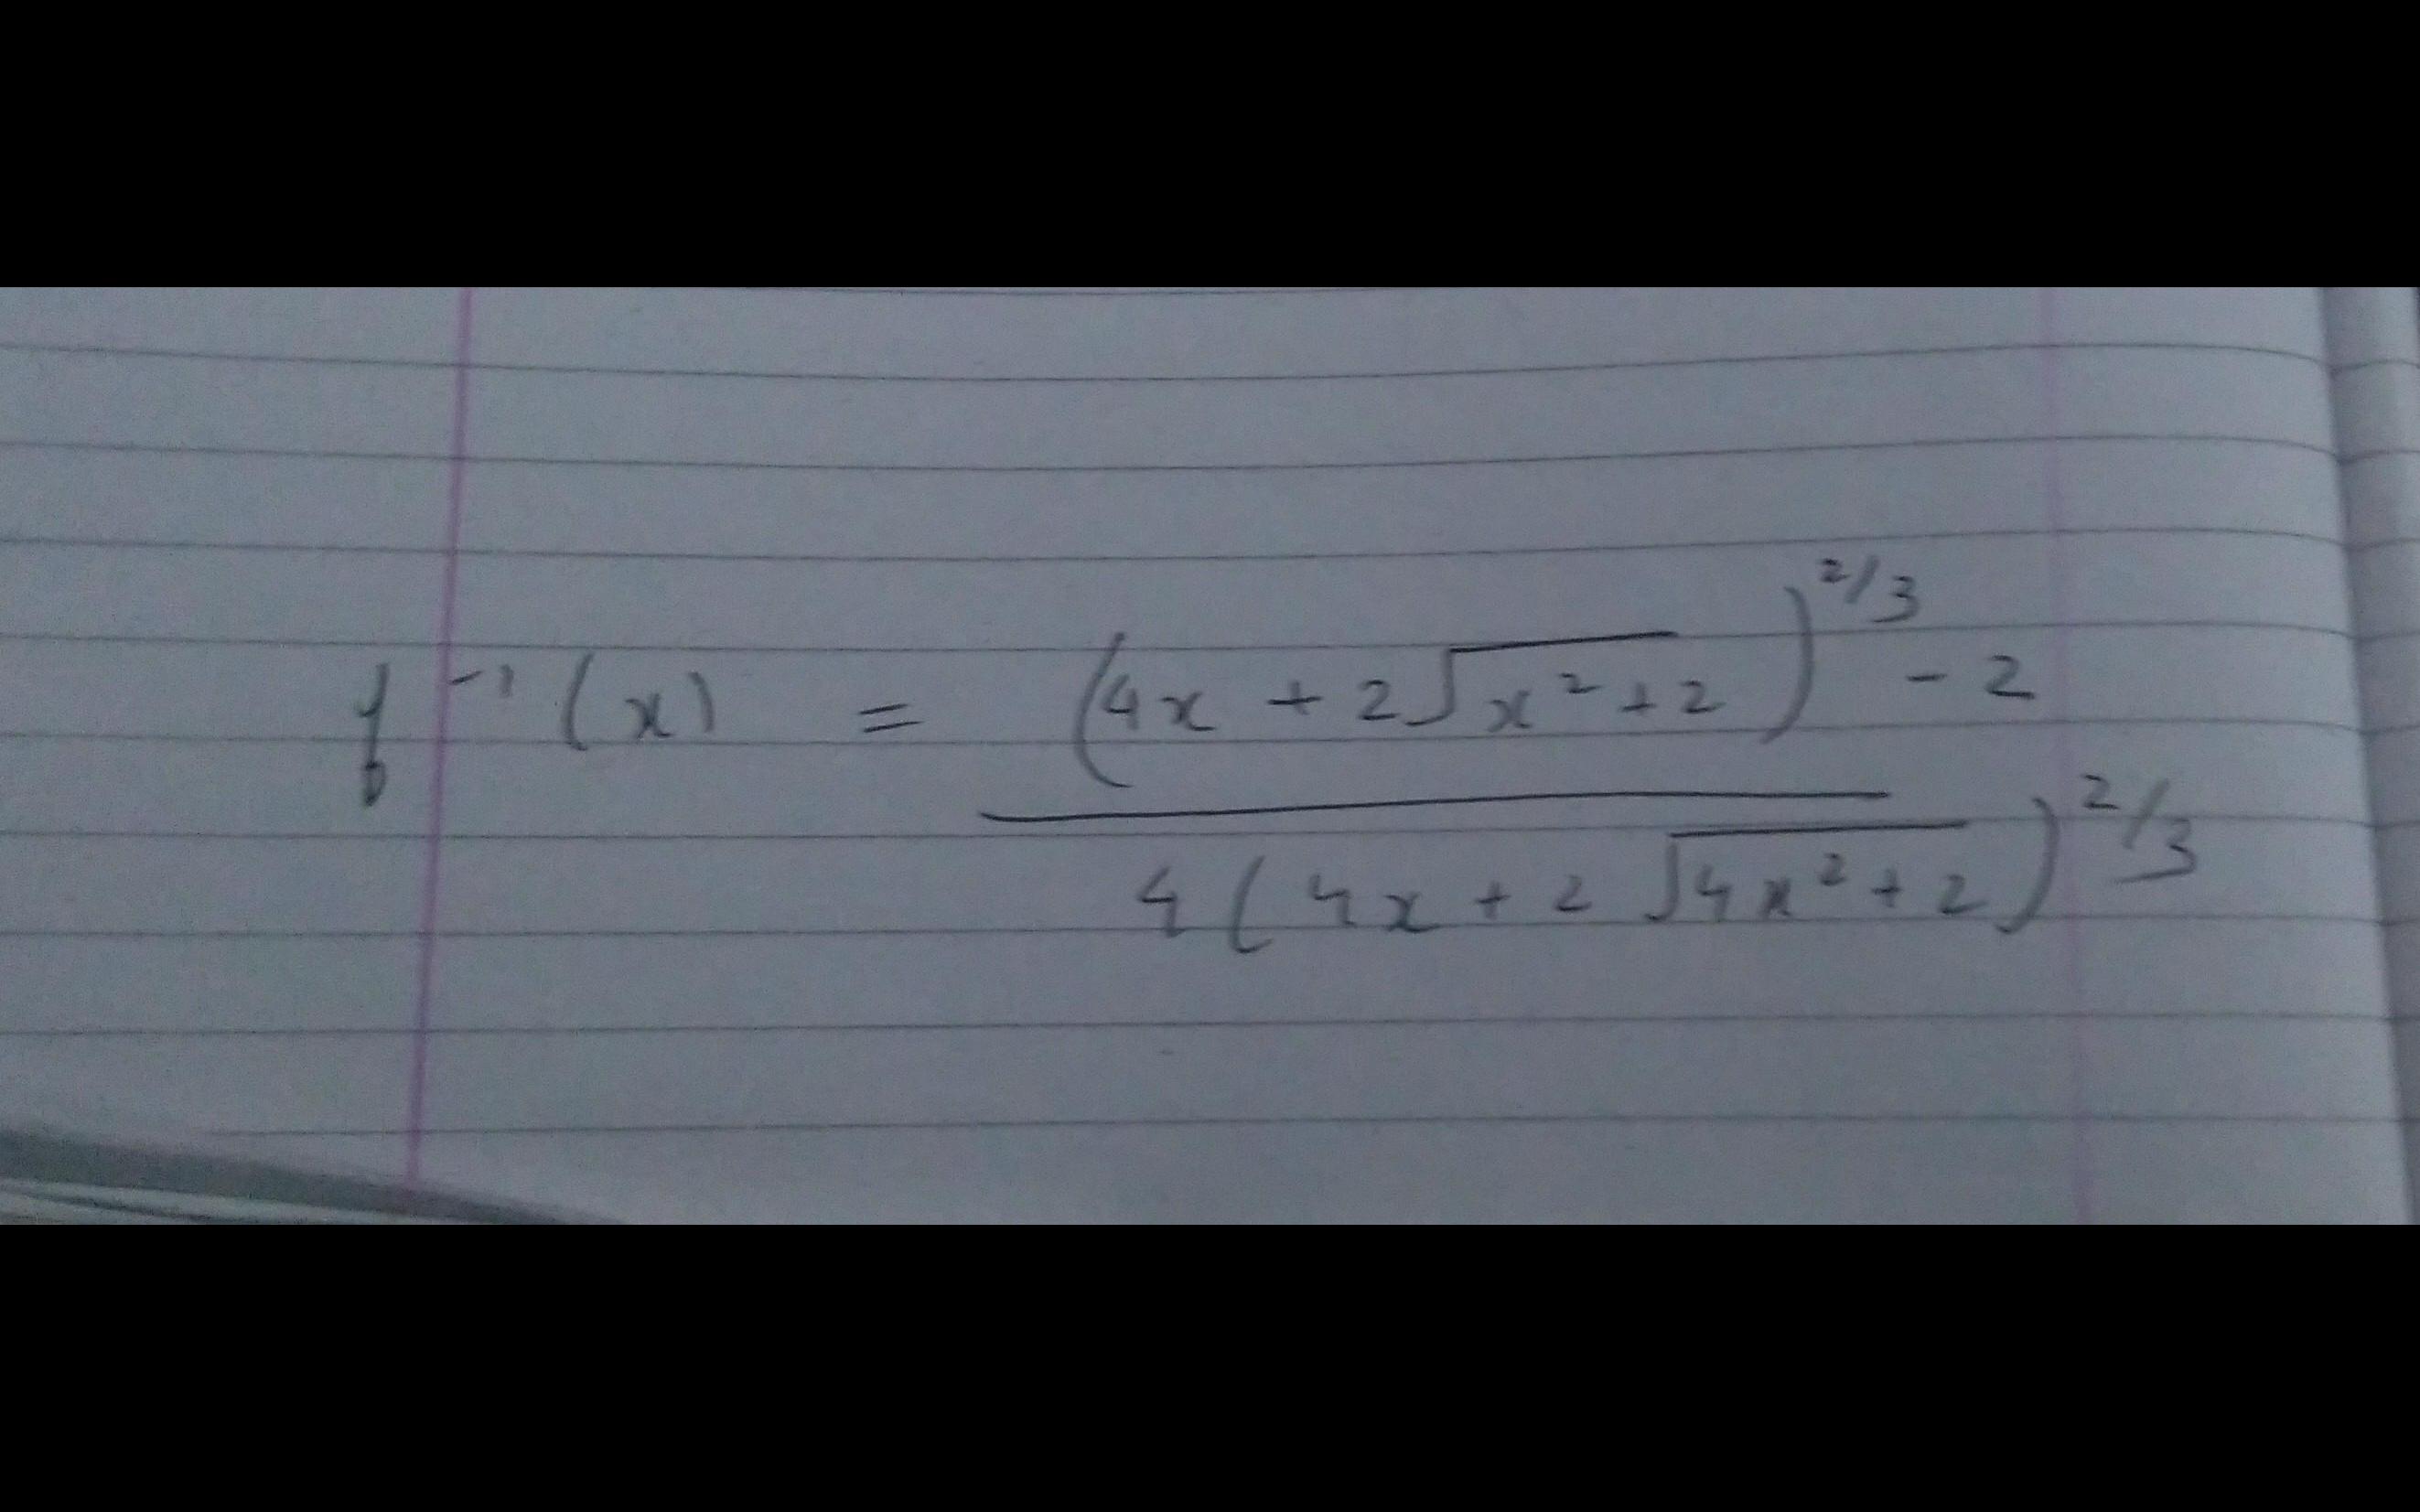 f⁻¹(x) = (4x + 2√(x² + 2))^(2/3) - 2
4(4x + 2√(4x² + 2))^(2/3)